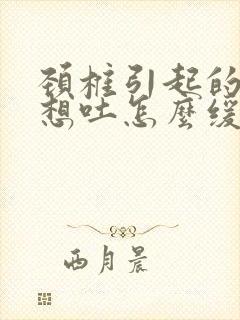 頚椎引起的
想吐怎麼緩
西月晨